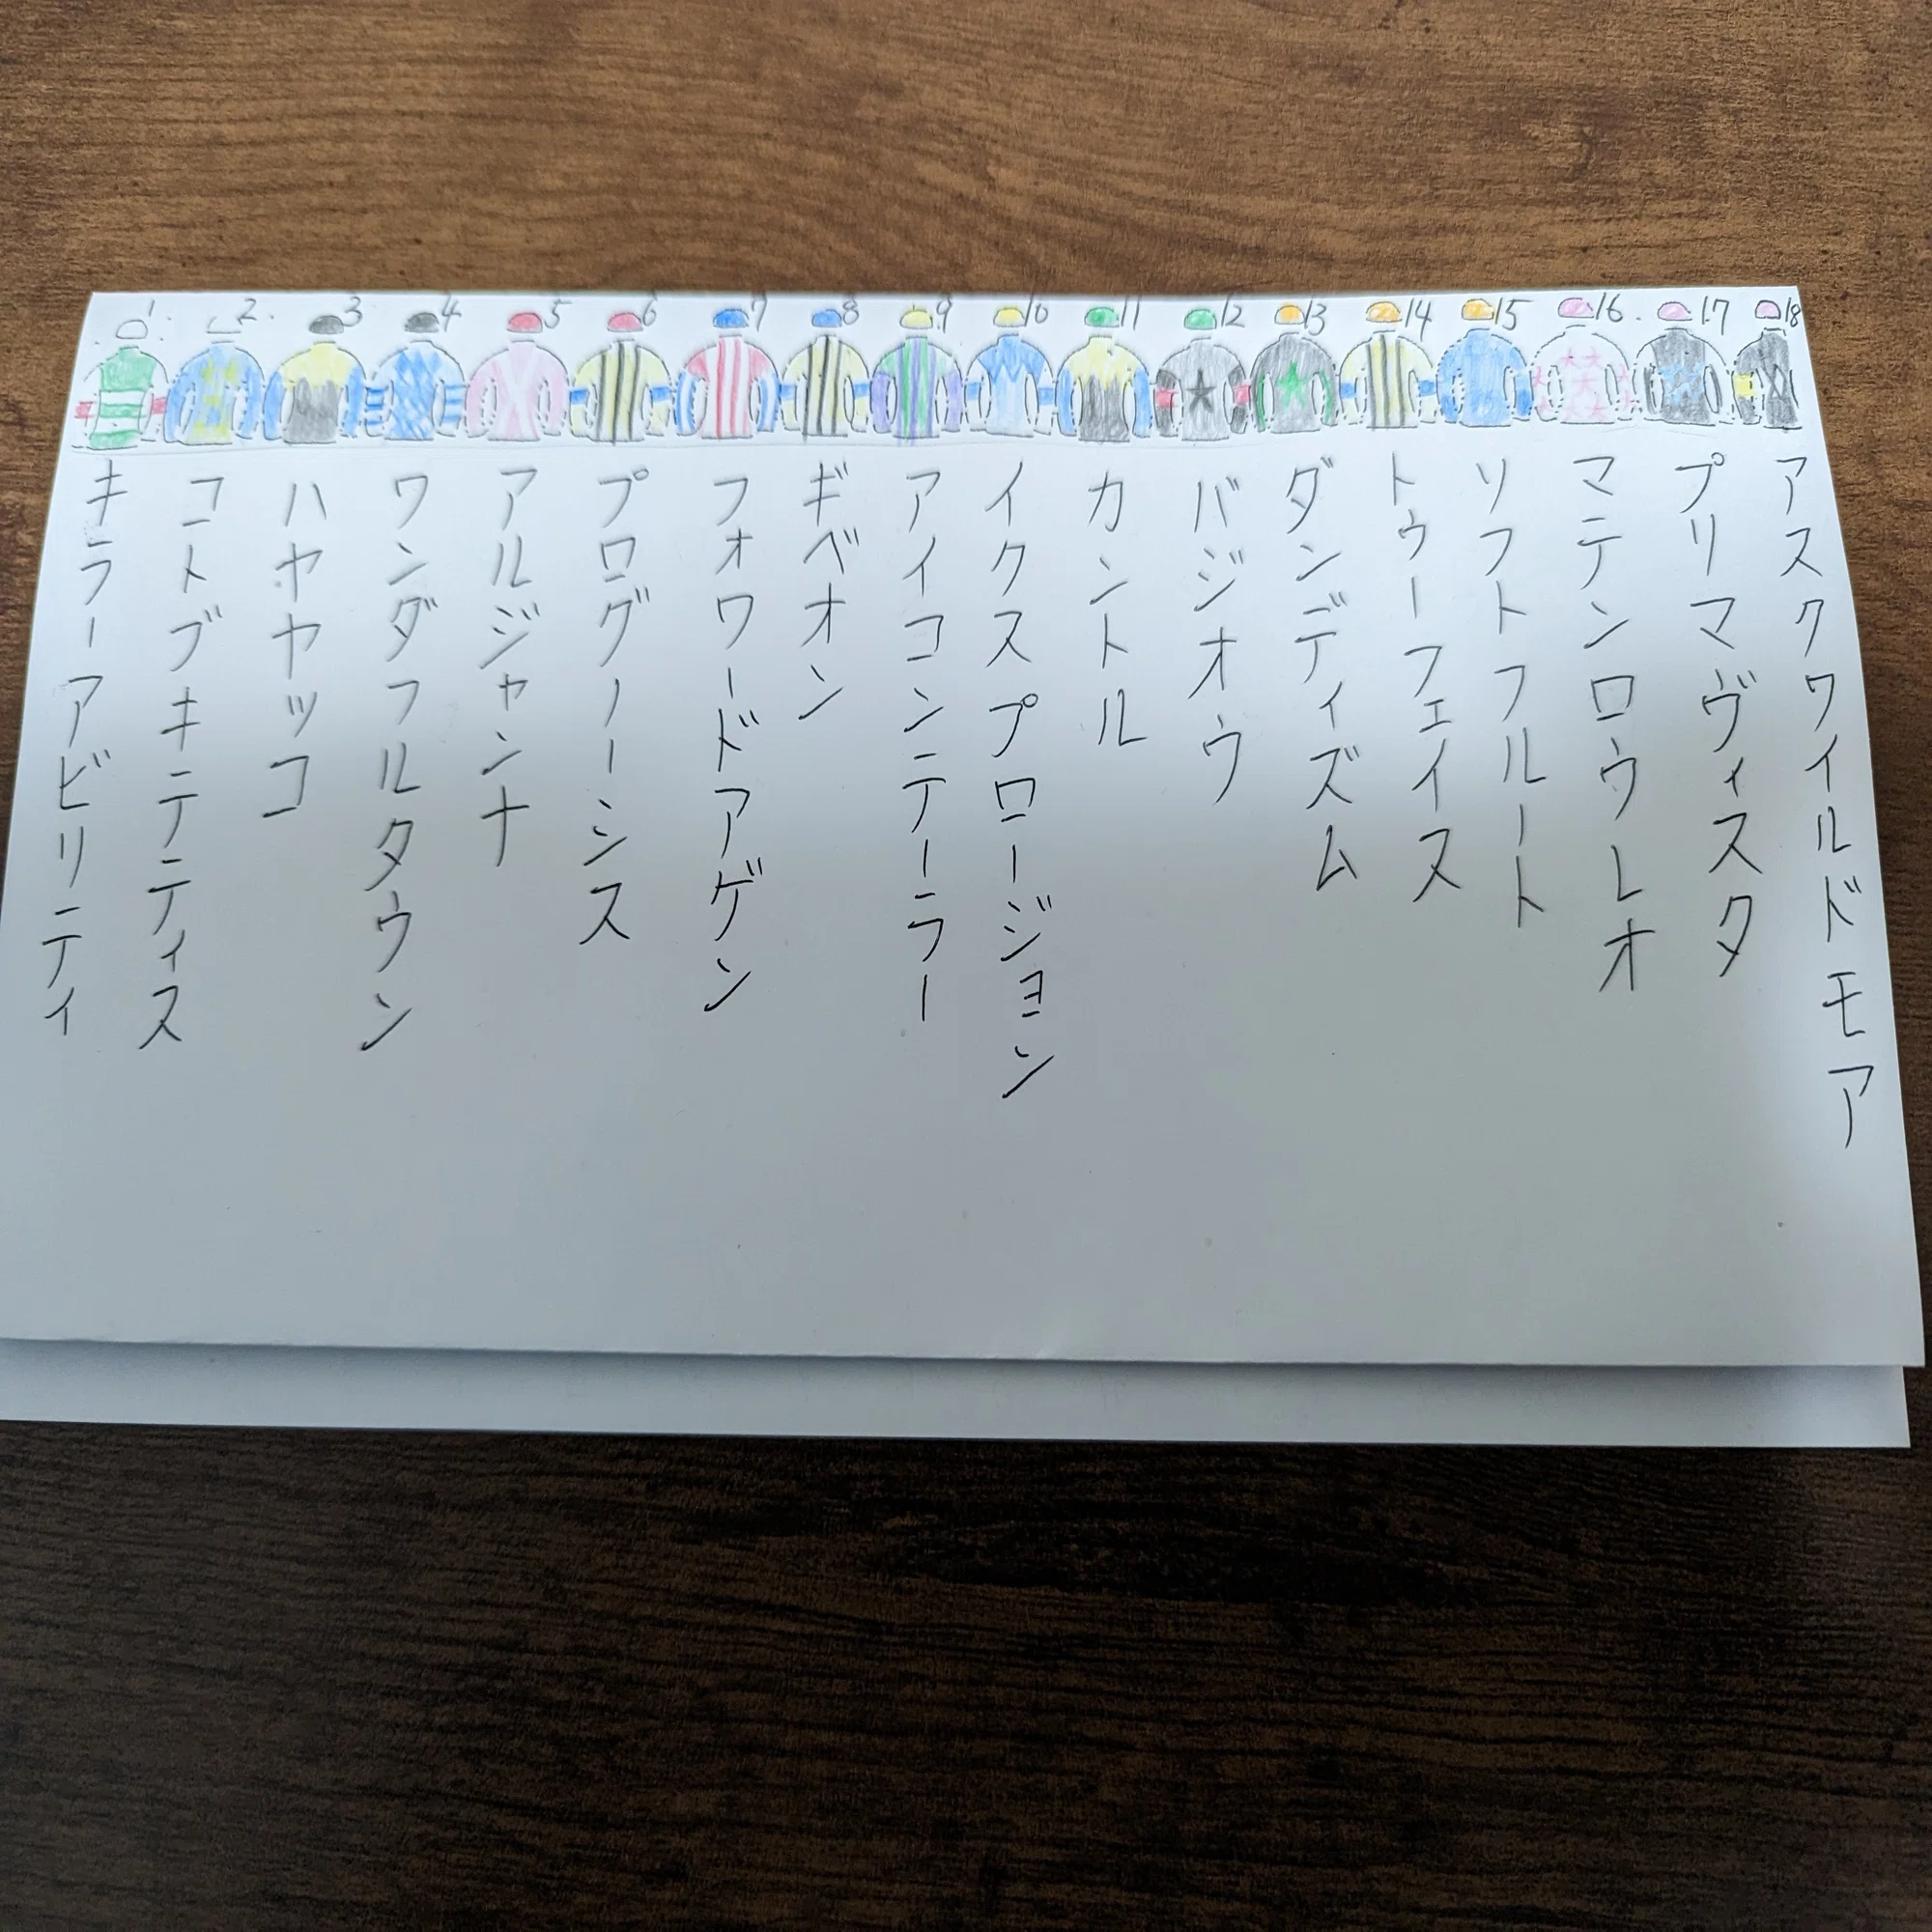 1 2 3 4 5 6 7 8 9 10 11 12 13 14 15 16 17 18
キラーアビリティ
コトブキテティス
ハヤヤッコ
ワンダフルタウン
アルジャンナ
プログノーシス
フォワードアゲン
ギベオン
アイコンテーラー
イクスプロージョン
カントル
バジオウ
ダンディズム
トゥーフェイス
ソフトフルート
マテンロウレオ
プリマヴィスタ
アスクワイルドモア